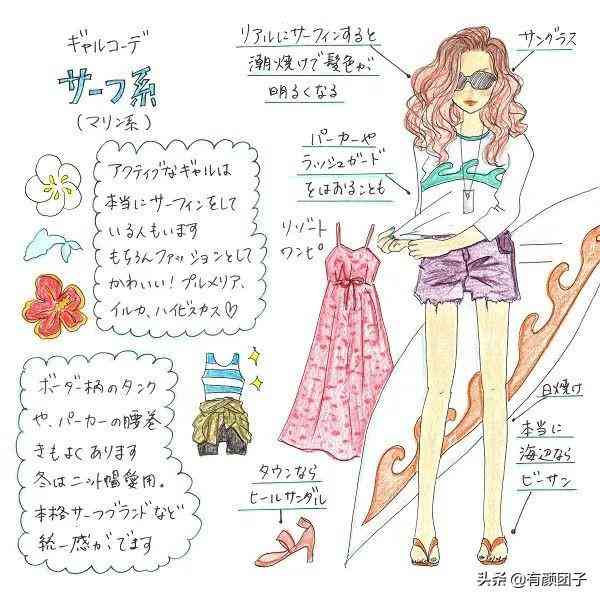 ギャルコーデ
サーフ系
(マリン系)
アクティブなギャルは
本当にサーフィンをして
いる人もいます
もちろんファッションとして
かわいい！プルメリア、
イルカ、ハイビスカス♡
ボーダー柄のタンク
や、パーカーの腰巻
きもよくあります
冬はニット帽愛用。
本格サーフブランドなど
統一感がでます
リアルにサーフィンすると
潮焼けで髪色が
明るくなる
サングラス
パーカーや
ラッシュガード
をはおることも
リゾート
ワンピ
タウンなら
ヒールサンダル
日焼け
本当に
海辺なら
ビーサン
头条 @有颜团子